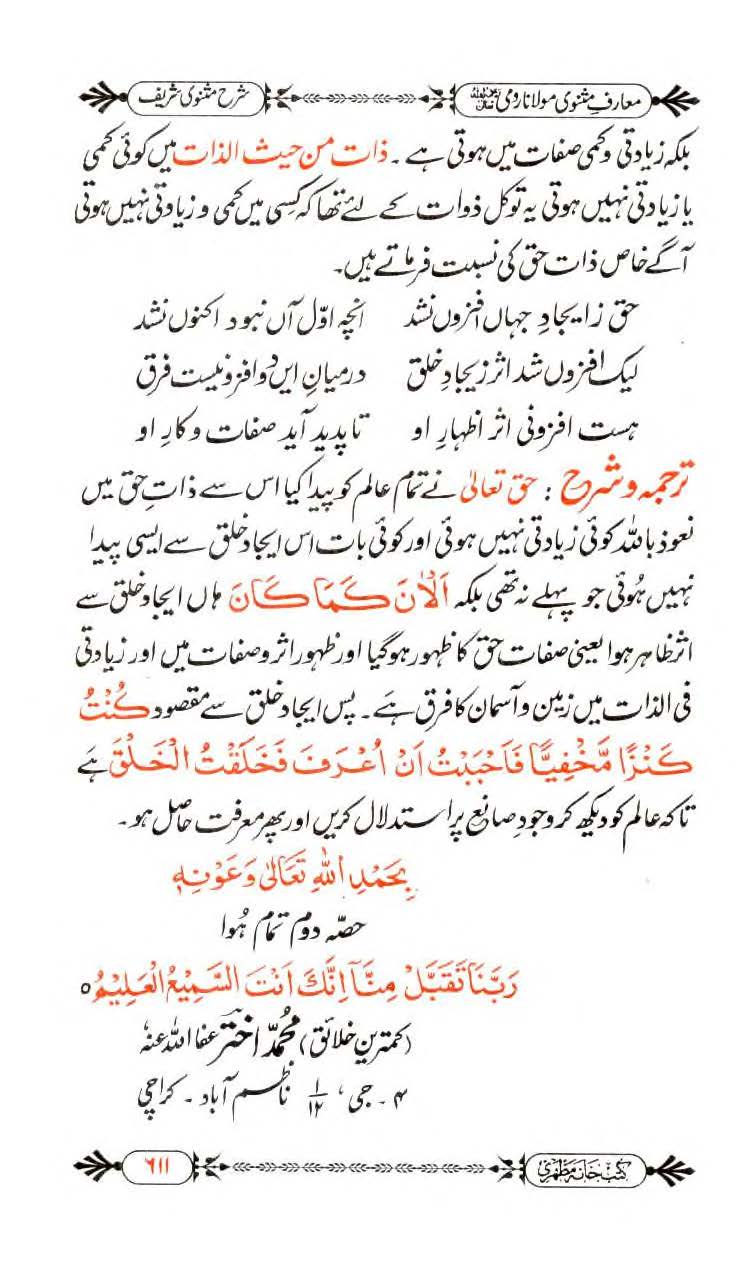 معارفِ مثنوی مولانا رومی رحمۃ اللہ علیہ
شرح مثنوی شریف
بلکہ زیادتی وکمی صفات میں ہوتی ہے ۔ ذات من حیث الذات میں کوئی کمی
یا زیادتی نہیں ہوتی یہ تو کل ذوات کے لئے تھا کہ کسی میں کمی و زیادتی نہیں ہوتی
آگے خاص ذات حق کی نسبت فرماتے ہیں۔
حق ز ایجادِ جہاں افزوں نشد انچہ اوّل آں نبود اکنوں نشد
لیک افزوں شد اثر زیجادِ خلق درمیانِ ایں دو افزونیست فرق
ہست افزونی اثر اظہارِ او تا پدید آید صفات و کارِ او
ترجمہ و شرح : حق تعالیٰ نے تمام عالم کو پیدا کیا اس سے ذاتِ حق میں
نعوذ باللہ کوئی زیادتی نہیں ہوئی اور کوئی بات اس ایجاد خلق سے ایسی پیدا
نہیں ہُوئی جو پہلے نہ تھی بلکہ اَلْاٰنَ كَمَا كَانَ ہاں ایجاد خلق سے
اثر ظاہر ہوا یعنی صفات حق کا ظہور ہوگیا اور ظہور اثر و صفات میں اور زیادتی
فی الذات میں زمین و آسمان کا فرق ہے ۔ پس ایجاد خلق سے مقصود كُنْتُ
كَنْزًا مَّخْفِيًّا فَاَحْبَبْتُ اَنْ اُعْرَفَ فَخَلَقْتُ الْخَلْقَ ہے
تاکہ عالم کو دیکھ کر وجودِ صانع پر استدلال کریں اور پھر معرفت حاصل ہو ۔
بِحَمْدِ اللّٰهِ تَعَالٰى وَعَوْنِهٖ
حصّہ دوم تمام ہُوا
رَبَّنَا تَقَبَّلْ مِنَّآ اِنَّكَ اَنْتَ السَّمِيْعُ الْعَلِيْمُ ٥
(کمترینِ خلائق) محمّد اختر عفا اللہ عنہ
۴ ۔ جی ، ۱/۱۲ ناظم آباد ۔ کراچی
کتب خانہ مظہری
۶۱۱